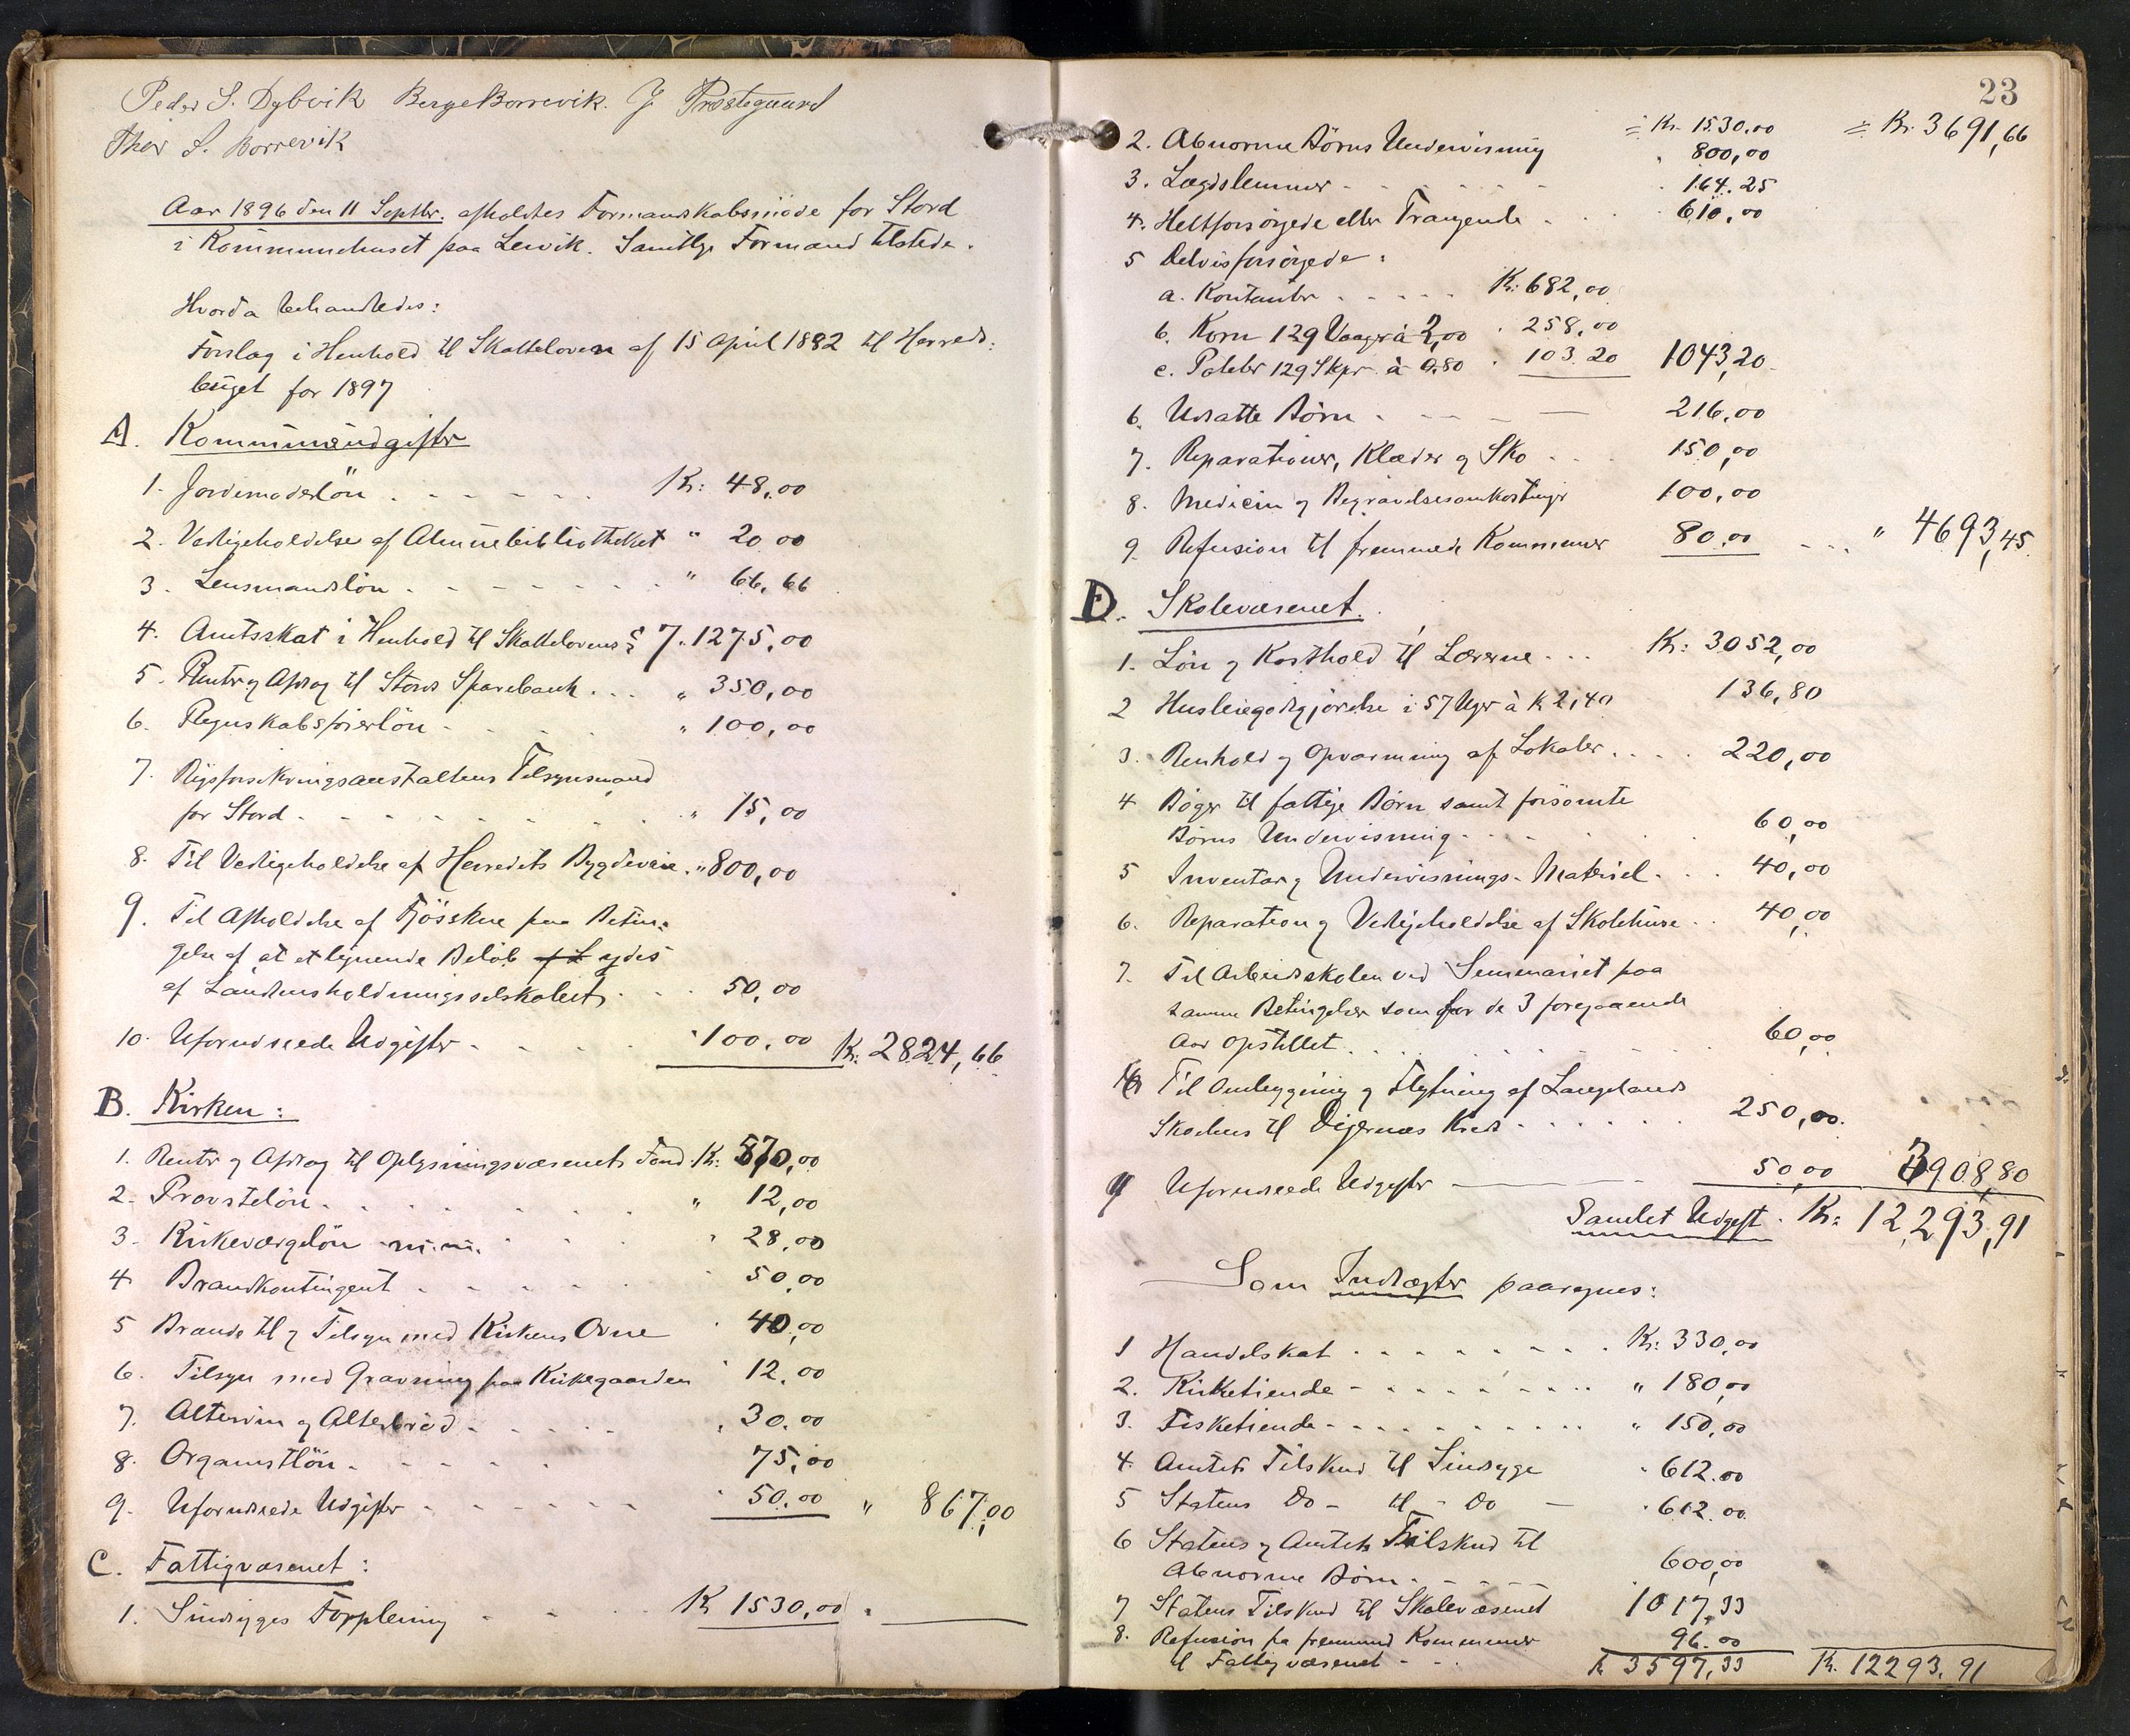 Peder S. Dybvik Berge Borrevik. J Præstegaard
Thor S. Borrevik
Aar 1896 den 11 Septbr. afholdtes Formandskabsmøde for Stord
i Kommunehuset paa Lervik. Samtlige Formænd tilstede.
Hvorda behandledes:
Forslag i Henhold til Skatteloven af 15 April 1882 til Herreds:
buget for 1897
A. Kommuneudgifter
1. Jordemoderløn . . . . . . Kr: 48,00
2. Vedligeholdelse af Almuebibliotheket " 20 00
3. Lensmandsløn . - - - - - - . " 66,66
4. Amtsskat i Henhold til Skattelovens § 7 . 1275,00
5. Renter og Afdrag til Stords Sparebank . . . " 350,00
6. Regnskabsførerløn - . . . . " 100,00
7. Rigsforsikringsanstaltens Tilsynsmand
for Stord . - - - - - - . . " 15,00
8. Til Vedligeholdelse af Herredets Bygdeveie . " 800,00
9. Til Afholdelse af Fjösskue paa Betin=
gelse af, at et lignende Beløb af L ydes
af Landhusholdningsselskabet . - . 50,00
10. Uforudseede Udgifter - . - . . 100,00 Kr: 2824,66
B. Kirken:
1. Renter og Afdrag til Oplysningsvæsenets Fond Kr: 570,00
2. Provsteløn . . . . . . . " 12,00
3. Kirkeværgeløn m.m. . . . 28,00
4 Brandkontingent . - - - . . 50,00
5 Brænde til og Tilsyn med Kirkens Ovne . 40,00
6. Tilsyn med Gravning paa Kirkegaarden " 12,00
7. Altervin og Alterbrød - - . . . . 30,00
8. Organistløn . - - - - . 75,00
9. Uforudseede Udgifter - - - - - - . 50.00 " 867,00
C. Fattigvæsenet:
1. Sindsyges Forpleining - - . . Kr 1530,00
23
= Kr. 1530.00 = Kr. 3691,66
2. Abnorme Børns Undervisning . 800,00
3. Lægdslemmer - - - - - . 164.25
4. Heltforsørgede eller Trængende . . . . 610,00
5 Delvisforsørgede:
a. Kontanter . . - - - . Kr: 682,00
b. Korn 129 Vaager à 2,00 . 258,00
c. Poteter 129 Skpr. à 0.80 . 103.20 1043,20
6. Udsatte Børn - - - - - 216,00
7. Reparationer, Klæder og Sko . . . 150,00
8. Medicin og Begravelsesomkostninger 100,00
9. Refusion til fremmede Kommuner 80.00 - - . " 4693,45
D. Skolevæsenet.
1. Løn og Kosthold til Lærerne . . . Kr: 3052,00
2 Husleiegodtgjørelse i 57 Uger à Kr 2,40 136,80
3. Renhold og Opvarmning af Lokaler . . . . 220,00
4 Bøger til fattige Børn samt forsømte
Børns Undervisning - . . . . 60,00
5 Inventar og Undervisnings-Materiel . . . 40,00
6. Reparation og Vedligeholdelse af Skolehuse . . 40,00
7. Til Arbeidsskolen ved Seminariet paa
samme Betingelser som for de 3 foregaaende
Aar opstillet . . . . . . . 60,00
Til Ombygning og Flytning af Langelands
Skolehus til Digernes Kreds . . . . . . 250,00.
9 Uforudseede Udgifter - - 50,00 3908,80
Samlet Udgift . Kr: 12,293,91
Som Indtægter paaregnes:
1 Handelskat . - - - - - - - . Kr: 330,00
2. Kirketiende - . . . . . . . " 180,00
3. Fisketiende - - . . . . . . " 150,00
4. Amtets Tilskud til Sindsyge . 612.00
5 Statens Do - til - Do - . 612.00
6 Statens og Amtets Tilskud til
Abnorme Børn . - - - 600,00
7 Statens Tilskud til Skolevæsenet 1017,33
8. Refusion fra fremmed Kommuner 96.00
til Fattigvæsenet - - . Kr 3597,33 Kr. 12293,91